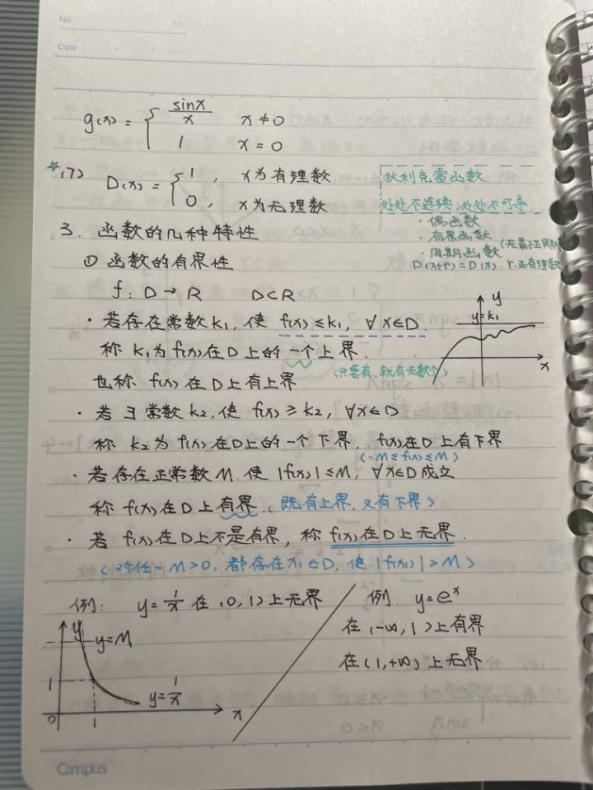 No.
Date
g(x) = { sinx/x x≠0
1 x=0
*(7) D(x) = { 1, x为有理数
0, x为无理数
狄利克雷函数
处处不连续,处处不可导
·偶函数
·有界函数
·周期函数 (无最小正周期)
D(x+r)=D(x) r:正有理数
3. 函数的几种特性
① 函数的有界性
f: D→R D⊂R
·若存在常数k₁,使 f(x)≤k₁, ∀x∈D.
称 k₁为f(x)在D上的一个上界.
(只要有,就有无数个)
也称 f(x)在D上有上界
y
y=k₁
x
·若∃常数k₂,使 f(x)≥k₂, ∀x∈D
称 k₂为f(x)在D上的一个下界, f(x)在D上有下界
(-M≤f(x)≤M)
·若存在正常数M,使 |f(x)|≤M, ∀x∈D成立
称f(x)在D上有界.(既有上界,又有下界)
·若 f(x)在D上不是有界,称f(x)在D上无界.
(对任一M>0,都存在x₁∈D,使|f(x₁)|>M)
例: y=1/x 在(0,1)上无界
例. y=eˣ
在(-∞,1)上有界
在(1,+∞)上无界
y
y=M
1
y=1/x
0
1
x
Campus